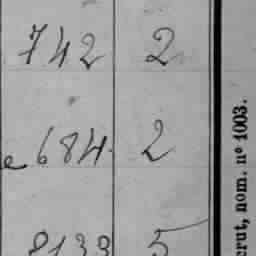 742 2
e 684. 2
8133 5
erut, nom. nº 1003.